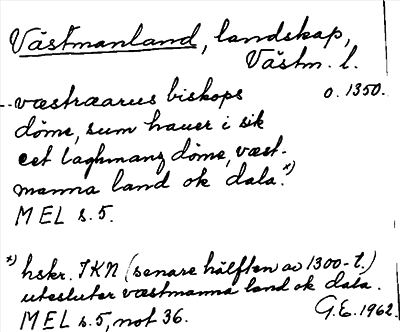 Västmanland, landskap,
Västm. l.
o. 1350.
--væstræarus biskops
döme, sum hauer i sik
eet laghmanz döme, væst-
manna land ok dala.x)
MEL s. 5.
x) hskr. IKN (senare hälften av 1300-t.)
utesluter væstmanna land ok dala.
MEL s. 5, not 36.
G.E. 1962.